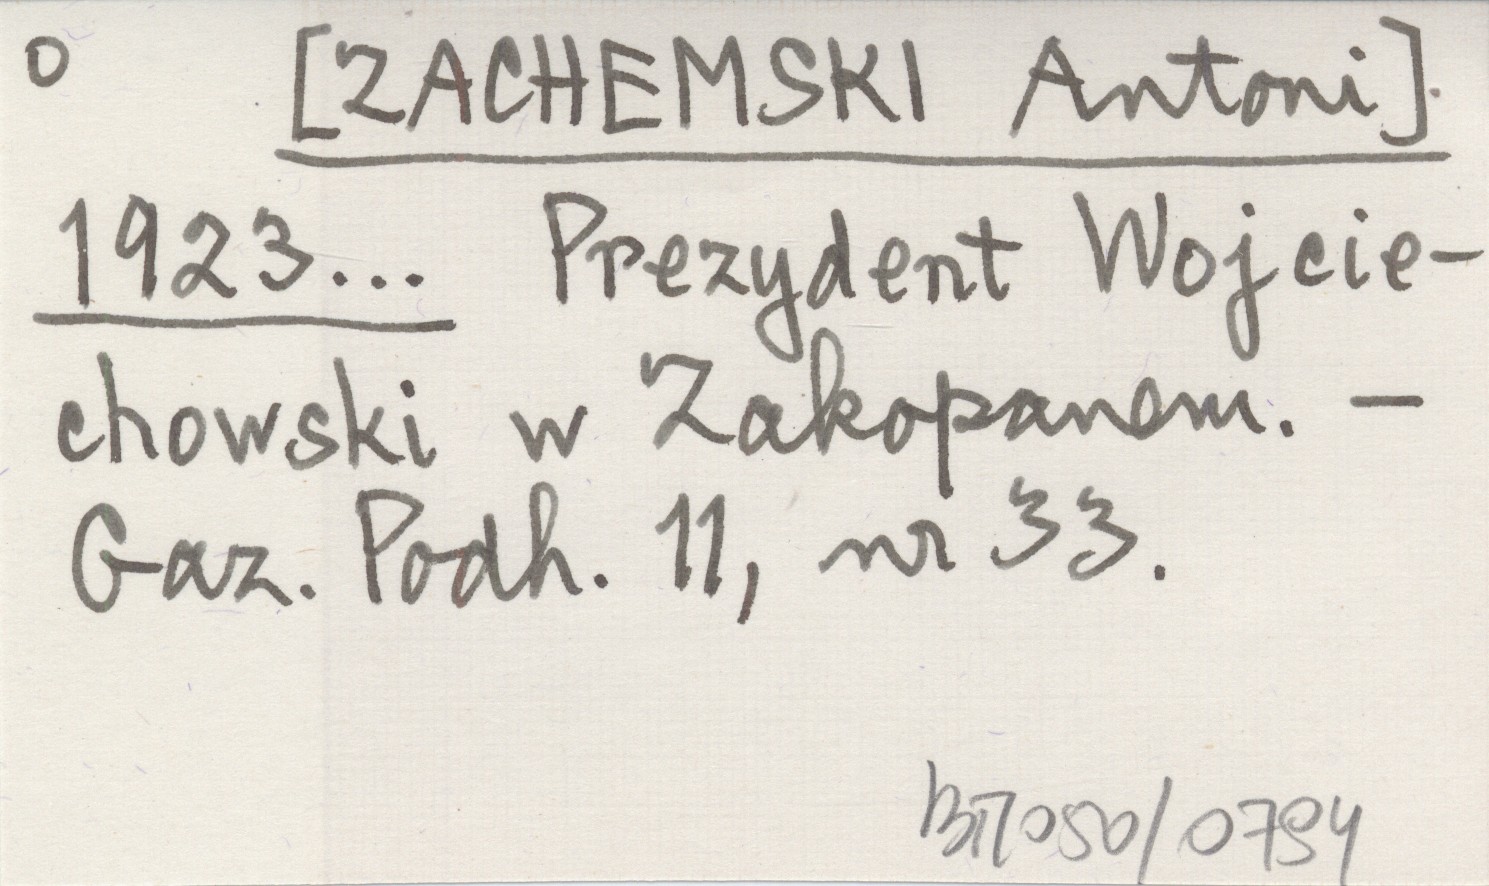 O [ZACHEMSKI Antoni].
1923... Prezydent Wojcie-
chowski w Zakopanem. -
Gaz. Podh. 11, nr 33.